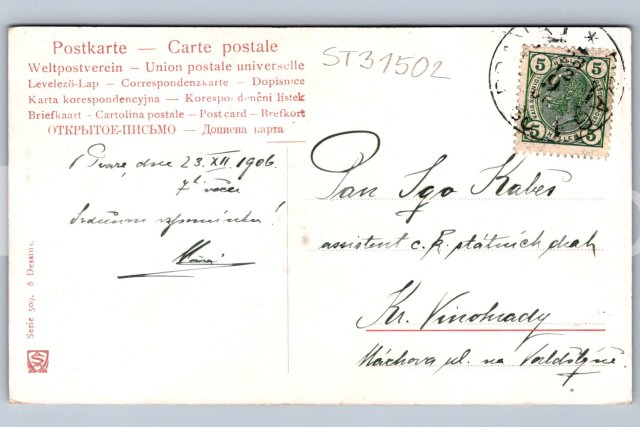 Postkarte — Carte postale
Weltpostverein — Union postale universelle
Levelező-Lap — Correspondenzkarte — Dopisnice
Karta korespondencyjna — Korespondenční lístek
Briefkaart — Cartolina postale — Post card — Brefkort
ОТКРЫТОЕ-ПИСЬМО — Дописна карта
ST31502
5 5
5 5
V Praze, dne 23. XII. 1906.
7 h. večer
Srdečnou vzpomínku!
Pan Igo Kabeš
assistent c. k. státních drah
Kr. Vinohrady
Máchova ul. na Valdštýně
Serie 509. 6 Dessins.